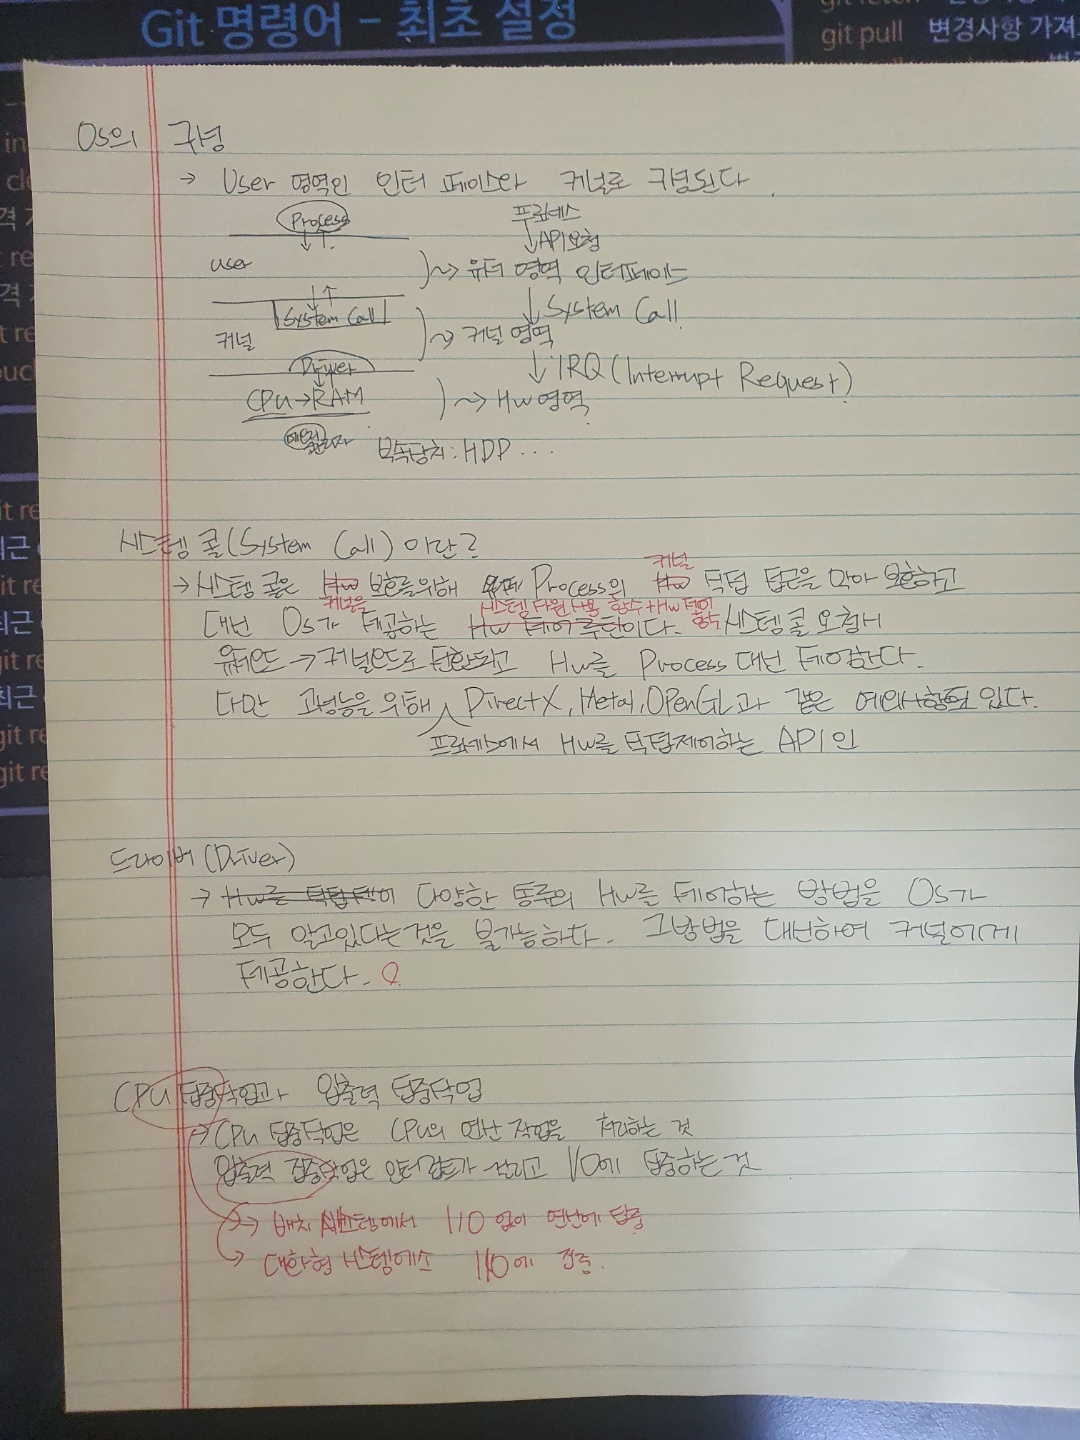 Git 명령어 - 최초 설정
git pull 변경사항 가져
OS의 구성
→ User 영역인 인터페이스와 커널로 구성된다
Process
user
System Call
커널
Driver
CPU → RAM
프로세스
↓ API요청
~> 유저 영역 인터페이스
↓ System Call
~> 커널 영역
↓ IRQ (Interrupt Request)
~> HW 영역
보조장치 : HDD ...
시스템 콜(System Call) 이란?
커널
→ 시스템 콜은 HW 보호를 위해 Process의 HW 직접 접근을 막아 보호하고
커널을 시스템 자원 사용 함수 + HW 제어 함수
대신 OS가 제공하는 HW 제어 루틴이다. 시스템 콜 요청시
유저모드 → 커널모드로 전환되고 HW를 Process 대신 제어한다.
다만 고성능을 위해 DirectX, Metal, OpenGL과 같은 예외사항도 있다.
프로세스에서 HW를 직접제어하는 API인
드라이버(Driver)
→ HW를 직접 제어 다양한 종류의 HW를 제어하는 방법을 OS가
모두 알고있다는것을 불가능하다. 그방법을 대신하여 커널에게
제공한다.
CPU 집중작업과 입출력 집중작업
→ CPU 집중작업은 CPU의 연산 작업을 처리하는 것
입출력 집중작업은 인터럽트가 걸리고 I/O에 집중하는 것
→ 배치 시스템에서 I/O 없이 연산에 집중
→ 대화형 시스템에서 I/O에 집중.